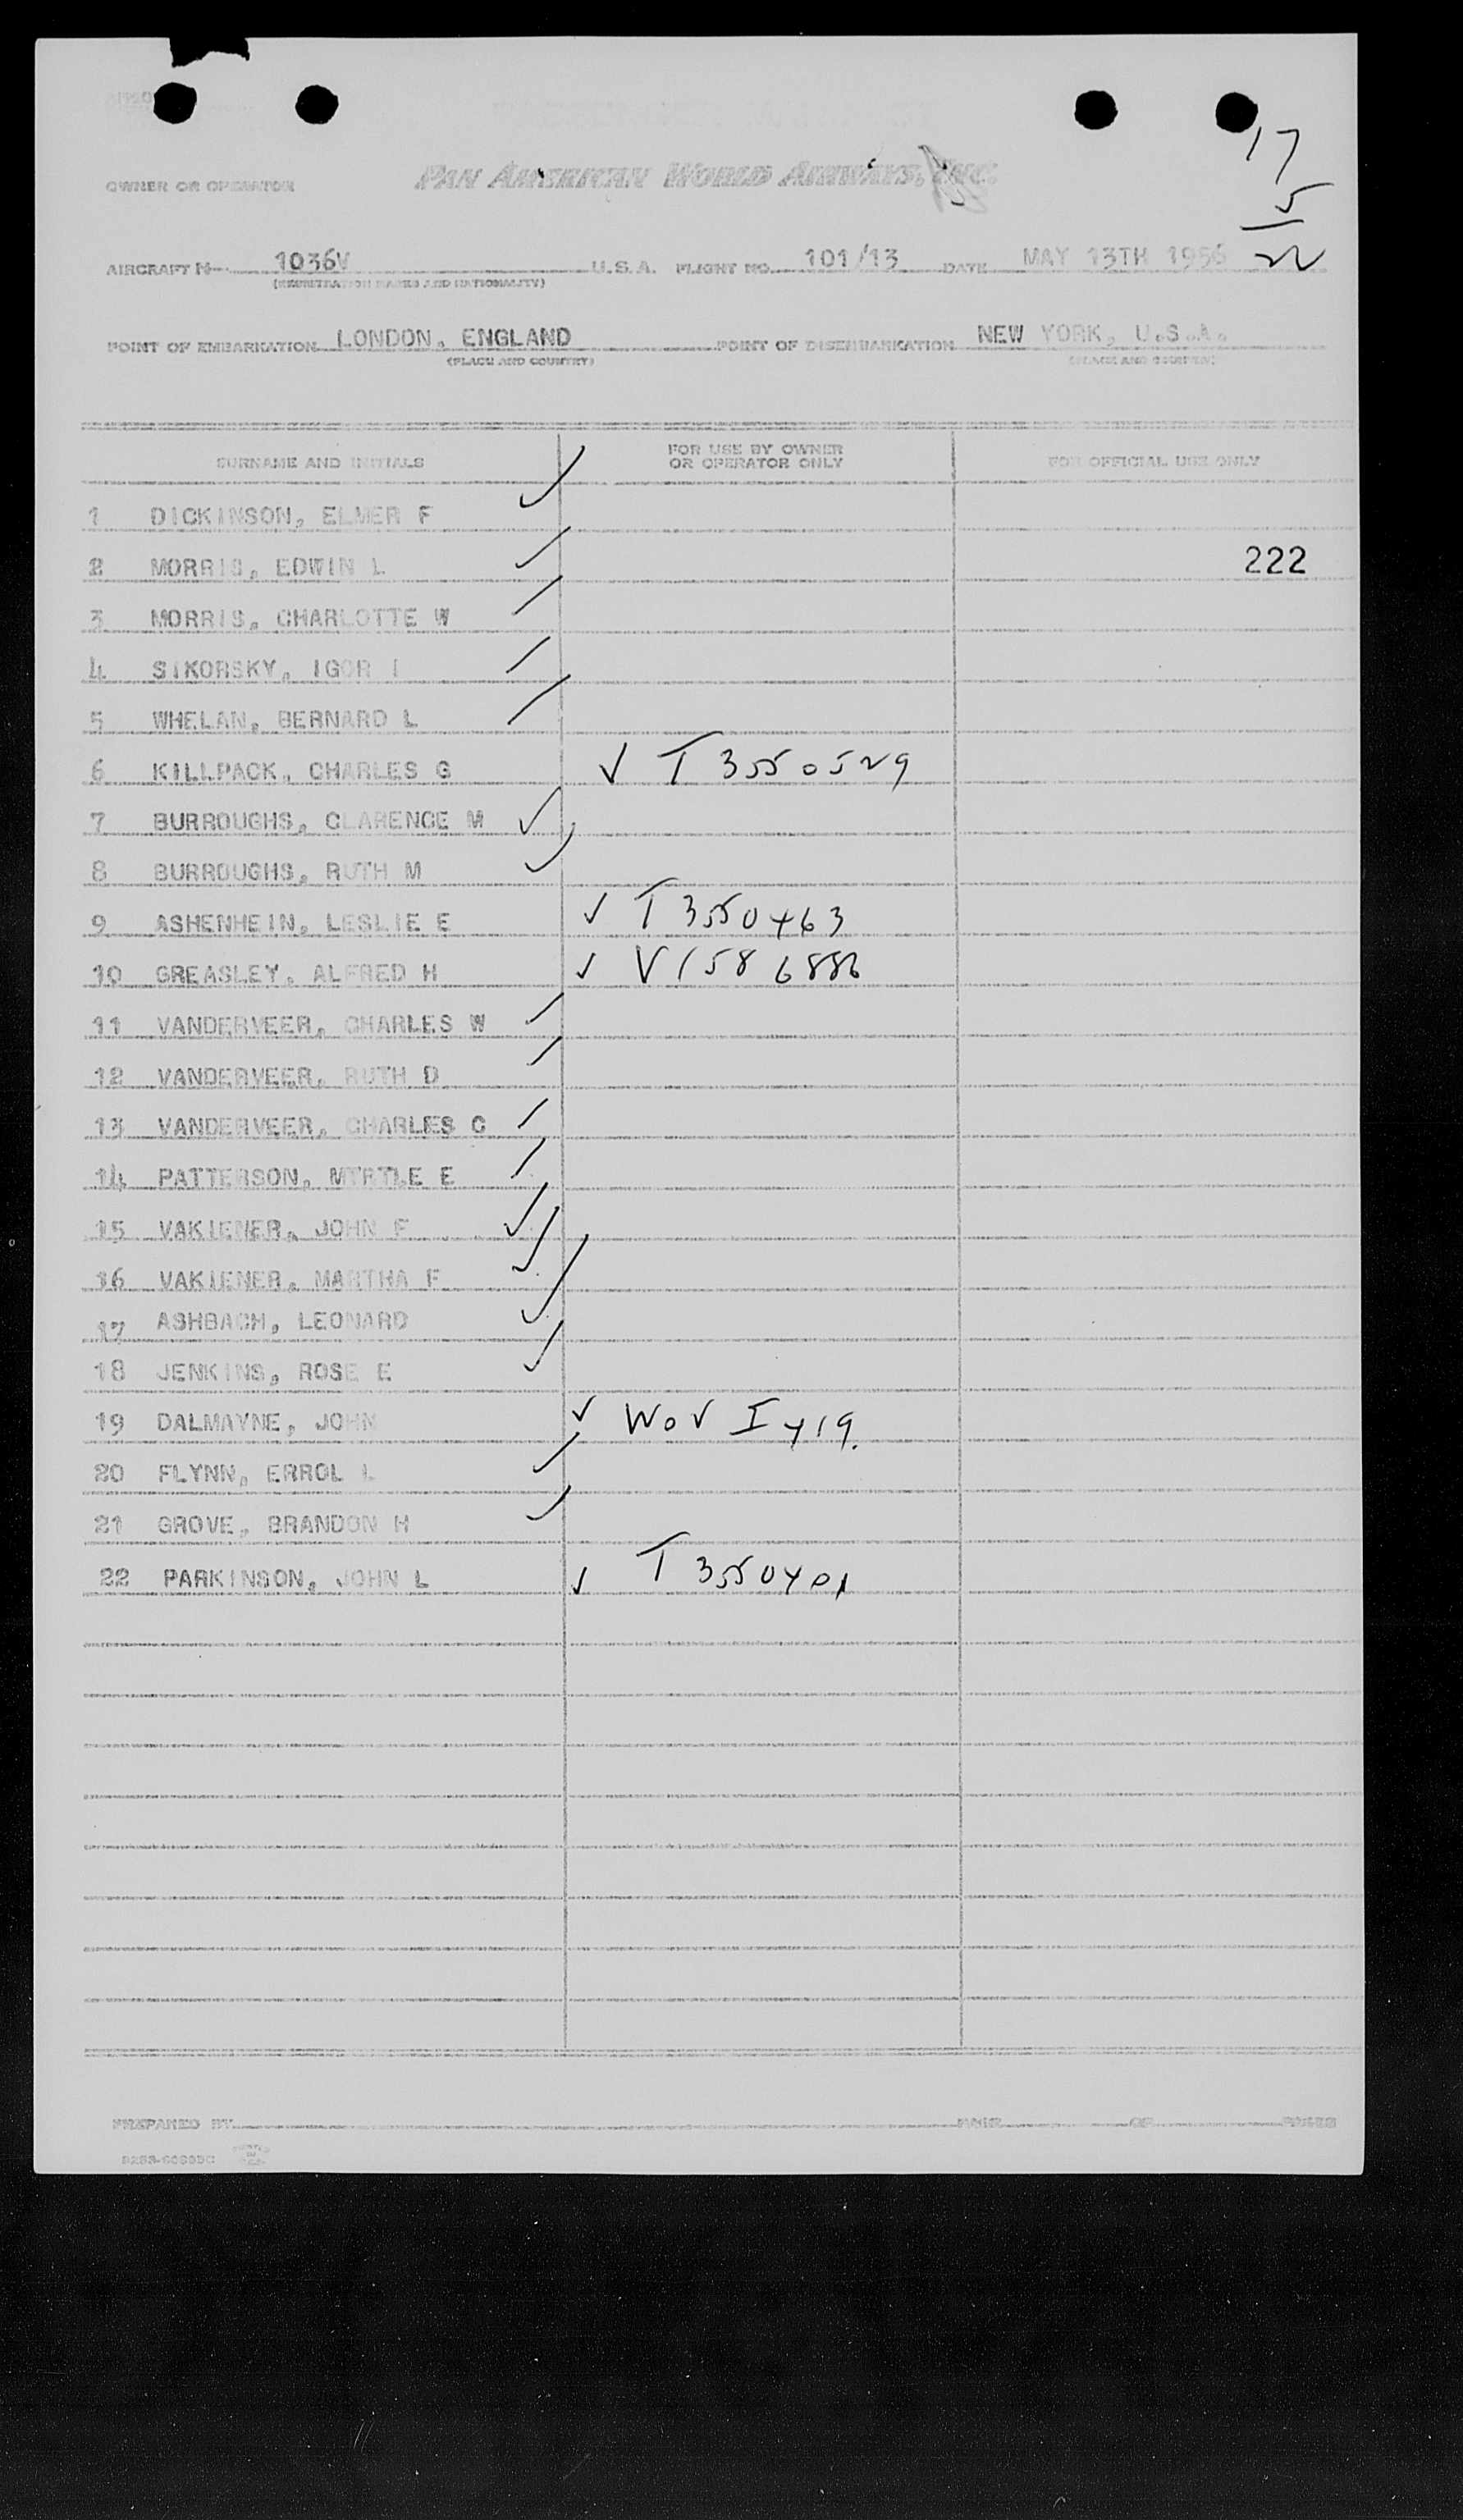 17
5
22
OWNER OR OPERATOR PAN AMERICAN WORLD AIRWAYS, INC.
AIRCRAFT N- 1036V U.S.A. FLIGHT NO. 101/13 DATE MAY 13TH 1956
(REGISTRATION MARKS AND NATIONALITY)
POINT OF EMBARKATION LONDON, ENGLAND POINT OF DISEMBARKATION NEW YORK, U.S.A.
(PLACE AND COUNTRY) (PLACE AND COUNTRY)
SURNAME AND INITIALS FOR USE BY OWNER OR OPERATOR ONLY FOR OFFICIAL USE ONLY
1 DICKINSON, ELMER F
2 MORRIS, EDWIN L 222
3 MORRIS, CHARLOTTE W
4 SIKORSKY, IGOR I
5 WHELAN, BERNARD L
6 KILLPACK, CHARLES G ✓ T 3550529
7 BURROUGHS, CLARENCE M ✓
8 BURROUGHS, RUTH M ✓
9 ASHENHEIN, LESLIE E ✓ T 3550463
10 GREASLEY, ALFRED H ✓ V1586886
11 VANDERVEER, CHARLES W
12 VANDERVEER, RUTH D
13 VANDERVEER, CHARLES C
14 PATTERSON, MYRTLE E
15 VAKIENER, JOHN F ✓
16 VAKIENER, MARTHA F ✓
17 ASHBACH, LEONARD ✓
18 JENKINS, ROSE E ✓
19 DALMAYNE, JOHN ✓ WOV I 419.
20 FLYNN, ERROL L ✓
21 GROVE, BRANDON H ✓
22 PARKINSON, JOHN L ✓ T 3550401
PREPARED BY PAGE OF PAGES